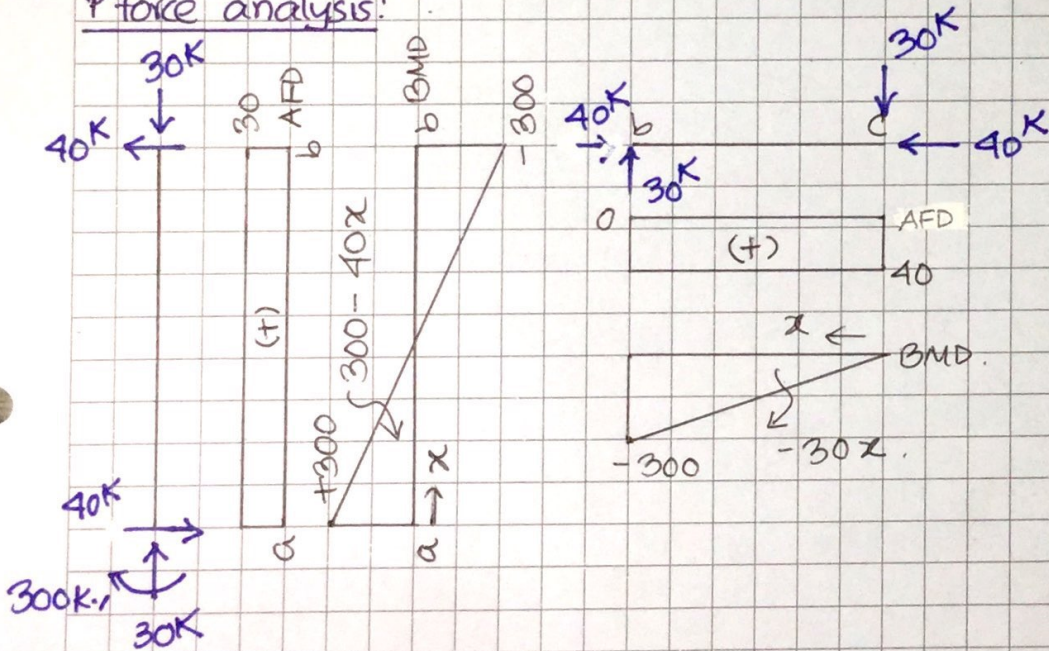 P force analysis:
30K
40K
30
AFD
b
(+)
a
40K
300K.,
30K
BMD
b
-300
300-40x
+300
→ x
a
30K
40K
b
C
40K
30K
0
AFD
(+)
40
x ←
BMD.
-300
-30x.